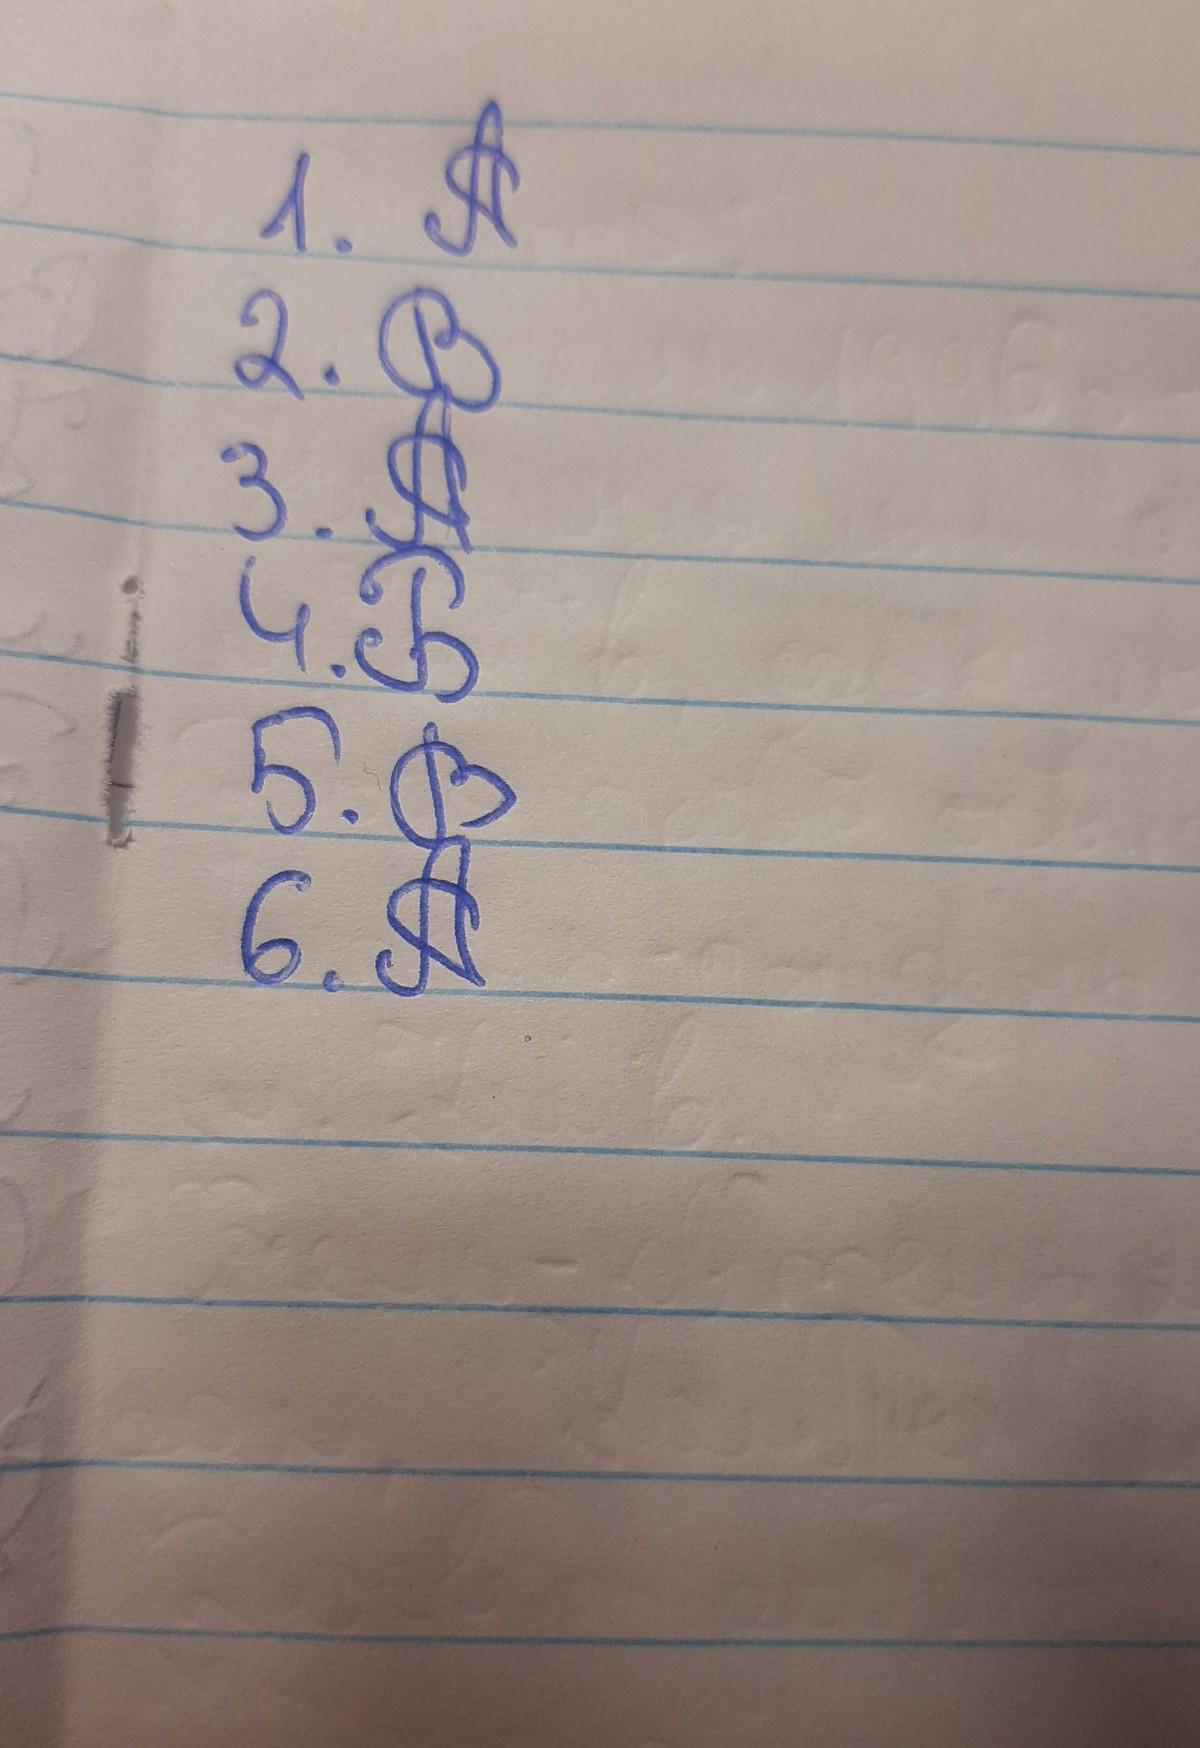 1. А
2. В
3. А
4. Б
5. В
6. А